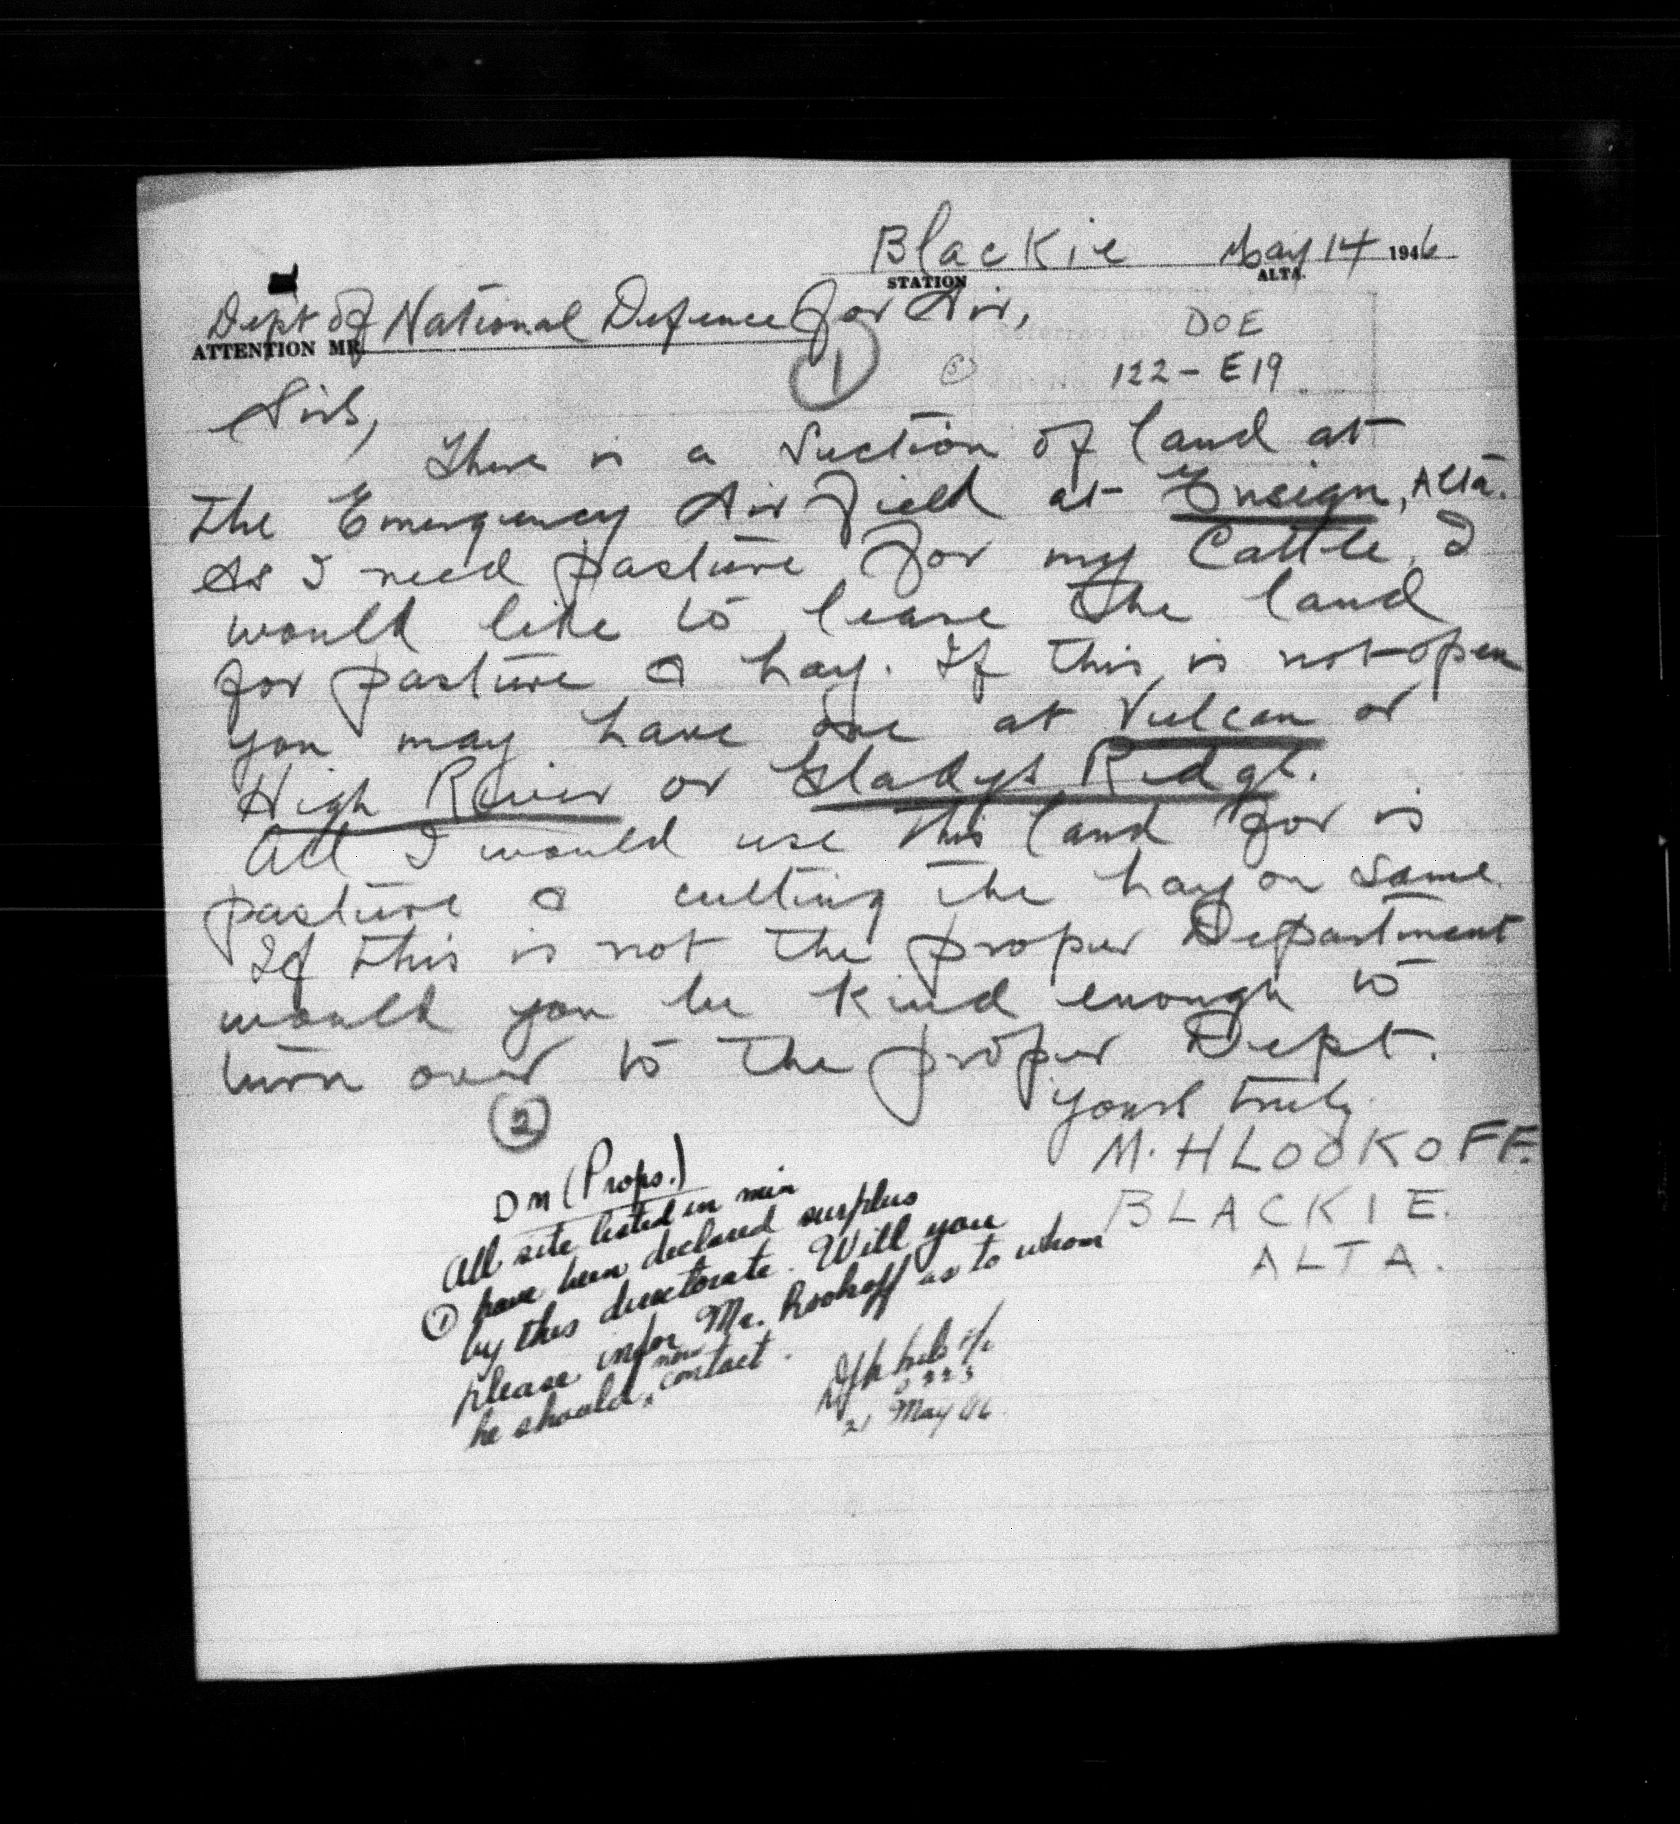 Blackie May 14 1946
STATION ALTA.
Dept of National Defence for Air,
ATTENTION MR.
①
DOE
122-E19
Sirs,
There is a Section of land at
the Emergency Air Field at Ensign, Alta.
As I need pasture for my Cattle, I
would like to lease the land
for pasture & hay. If this is not open
you may have one at Vulcan or
High River or Gladys Ridge.
All I would use this land for is
pasture & cutting the hay on same.
If this is not the proper Department
would you be kind enough to
turn over to the proper Dept.
Yours truly
M. HLOOKOFF.
BLACKIE.
ALTA.
②
DM (Props.)
All site listed in min
① have been declared surplus
by this directorate. Will you
please infor Mr. as to whom
he should now contact.
21 May 46